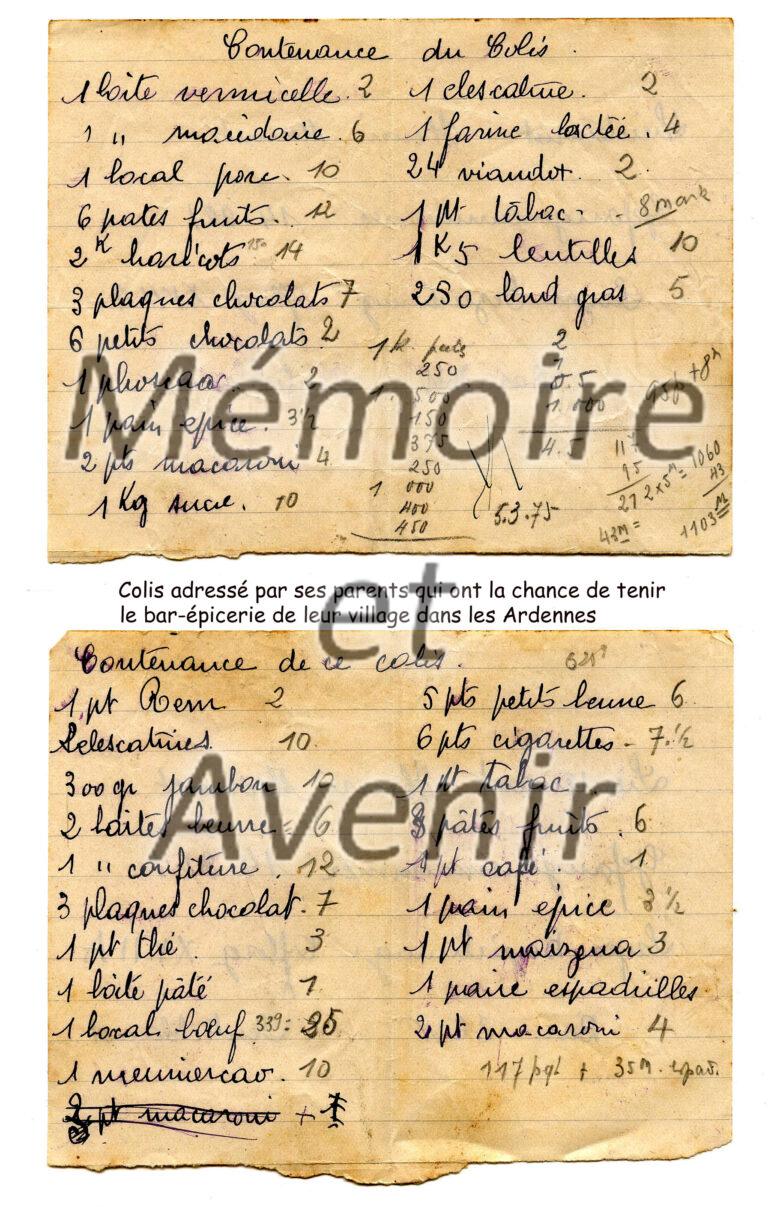 Contenance du Colis.
1 boite vermicelle. 2
1 " macédoine. 6
1 bocal porc. 10
6 pates fruits. 12
2K haricots 14
3 plaques chocolats 7
6 petits chocolats. 2
1 phoscao. 2
1 pain épice. 3½
2 pts macaroni 4
1 Kg sucre. 10
1 farine lactée. 4
24 viandox. 2
1 pt tabac - 8 mark
1K5 lentilles 10
250 land gras 5
1 K
250
500
150
375
250
1 000
400
450
2
0.5
1.000
4.5
5.3.75
95p + 8M
117
95
27
2x5M = 1060
43
1103M
43M =
Colis adressé par ses parents qui ont la chance de tenir
le bar-épicerie de leur village dans les Ardennes
Contenance de ce colis.
1 pt 2
10
300 gr jambon 10
2 boites beurre = 6
1 " confiture. 12
3 plaques chocolat. 7
1 pt thé. 3
1 boite pâté 1
1 bocal bœuf 339 = 25
10
2 pt macaroni + 1
5 pts petits beurre 6
6 pts cigarettes - 7.½
1 pt tabac
3 pâtes fruits. 6
1 pt café. 1
1 pain épice 3½
1 pt maizena 3
1 paire espadrilles
2 pt macaroni 4
117 pgt + 35M. espad.
Mémoire
et
Avenir